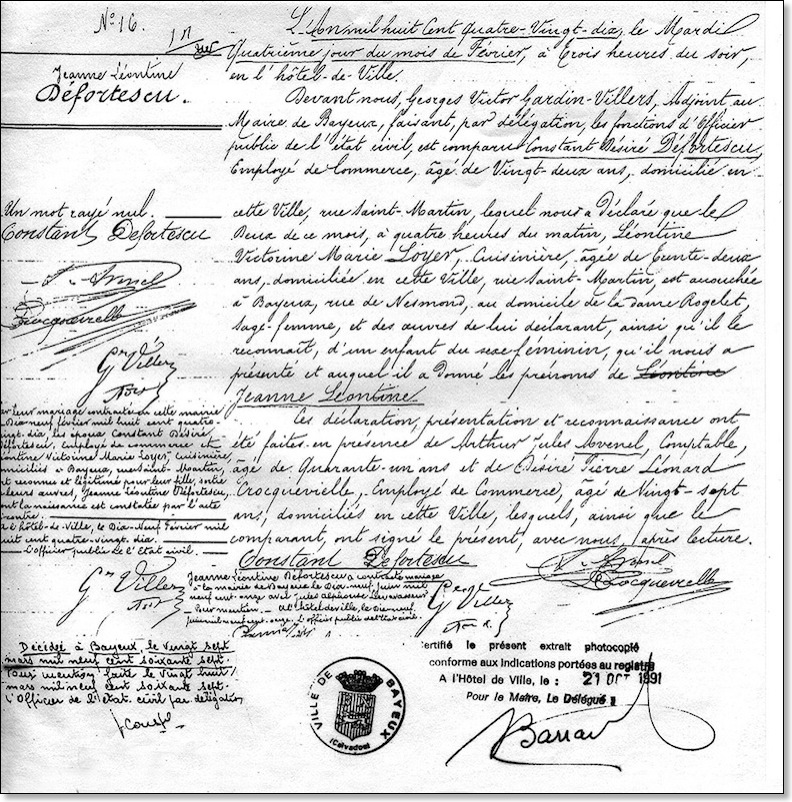 N° 16.
Jeanne Léontine
Défortescu.
L'An mil huit Cent quatre-Vingt-dix, le Mardi
Quatrième jour du mois de Février, à Trois heures du soir,
en l'hôtel-de-Ville.
Devant nous, Georges Victor Gardin-Villers, Adjoint au
Maire de Bayeux, faisant, par délégation, les fonctions d'Officier
public de l'état civil, est comparu Constant Désiré Défortescu,
Employé de Commerce, âgé de Vingt-deux ans, domicilié en
cette Ville, rue Saint-Martin, lequel nous a Déclaré que le
Deux de ce mois, à quatre heures du matin, Léontine
Victorine Marie Loyer, Cuisinière, âgée de Trente-deux
ans, domiciliée en cette Ville, rue Saint-Martin, est accouchée
à Bayeux, rue de Nesmond, au domicile de la dame Rogelet,
Sage-femme, et des œuvres de lui déclarant, ainsi qu'il le
reconnaît, d'un enfant du sexe féminin, qu'il nous a
présenté et auquel il a Donné les prénoms de Léontine
Jeanne Léontine.
Ces déclaration, présentation et reconnaissance ont
été faites en présence de Arthur Jules Avenel, Comptable,
âgé de Quarante-un ans et de Désiré Pierre Léonard
Crocquevielle, Employé de Commerce, âgé de Vingt-sept
ans, domiciliés en cette Ville, lesquels, ainsi que le
comparant, ont signé le présent, avec nous, après lecture.
Constant Defortescu
A. Avenel
Crocquevielle
Ges Villers
Un mot rayé nul.
Constant Defortescu
A. Avenel
Crocquevielle
Ges Villers
Par leur mariage contracté en cette mairie
le Dix-neuf février mil huit cent quatre-
vingt-dix, les époux Constant Désiré
Défortescu, Employé de commerce et
Léontine Victoire Marie Loyer, Cuisinière,
domiciliés à Bayeux, rue Saint-Martin,
ont reconnu et légitimé pour leur fille, sortie
de leurs œuvres, Jeanne Léontine Défortescu,
dont la naissance est constatée par l'acte
À l'hôtel-de-Ville, le Dix-Neuf Février mil
huit cent quatre-vingt-dix.
L'officier public de l'Etat civil.
Ges Villers
Jeanne Léontine Défortescu a contracté mariage
à la mairie de Bayeux le Dix-neuf Juin mil
neuf cent onze avec Jules Alphonse Levavasseur
Pour mention. À l'hôtel de ville, le Dix-neuf
Juin mil neuf cent onze. L'officier public de l'état civil.
Décédée à Bayeux, le vingt sept
mars mil neuf cent soixante sept.
Pour mention faite le vingt huit
mars mil neuf cent soixante sept.
L'Officier de l'Etat civil par délégation
VILLE DE BAYEUX
(Calvados)
Certifié le présent extrait photocopié
conforme aux indications portées au registre
A l'Hôtel de Ville, le : 21 OCT 1991
Pour le Maire, Le Délégué